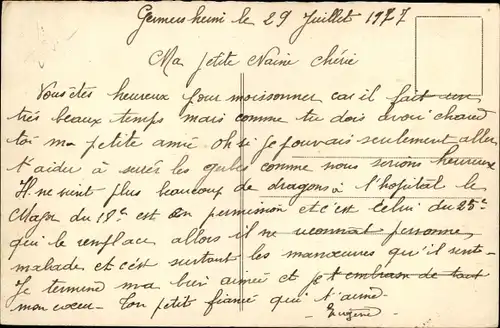 Germersheim le 29 Juillet 1927
Ma petite Naine Chérie
Vous êtes heureux pour moissonner car il fait un
très beaux temps mais comme tu dois avoir chaud
toi ma petite amie oh si je pouvais seulement aller
t'aider à serrés les gerbes comme nous serions heureux
Il ne vient plus beaucoup de dragons à l'hopital le
Major du 18e est en permission et c'est celui du 25e
qui le remplace allors il ne reconnait personne
malade et c'est surtout les manœuvres qu'il sent
Je termine ma bien aimée et je t'embrasse de tout
mon cœur - Ton petit fiancé qui t'aime
Eugène